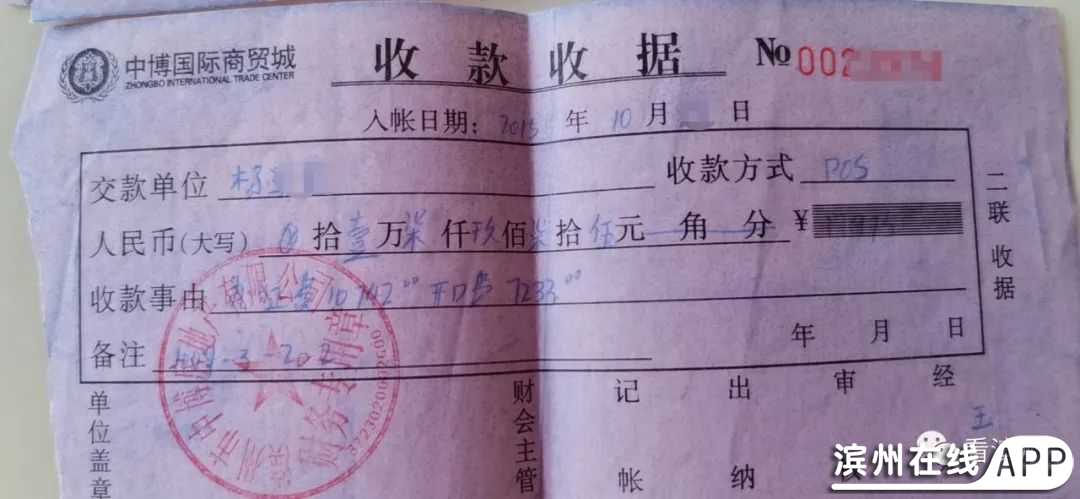 中博国际商贸城 收款收据 № 002
ZHONGBO INTERNATIONAL TRADE CENTER
入帐日期: 2015 年 10 月 日
交款单位 杨 收款方式 POS
人民币(大写) 拾壹万柒仟玖佰柒拾伍元 角 分 ¥
收款事由 证费 10742⁰⁰ 开口费 7233⁰⁰
年 月 日
备注 -3-202
二联 收据
滨州市中博 有限公司
财务专用章
单位盖章
财会主管
记 帐
出 纳
审
经
王
看
滨州在线/APP